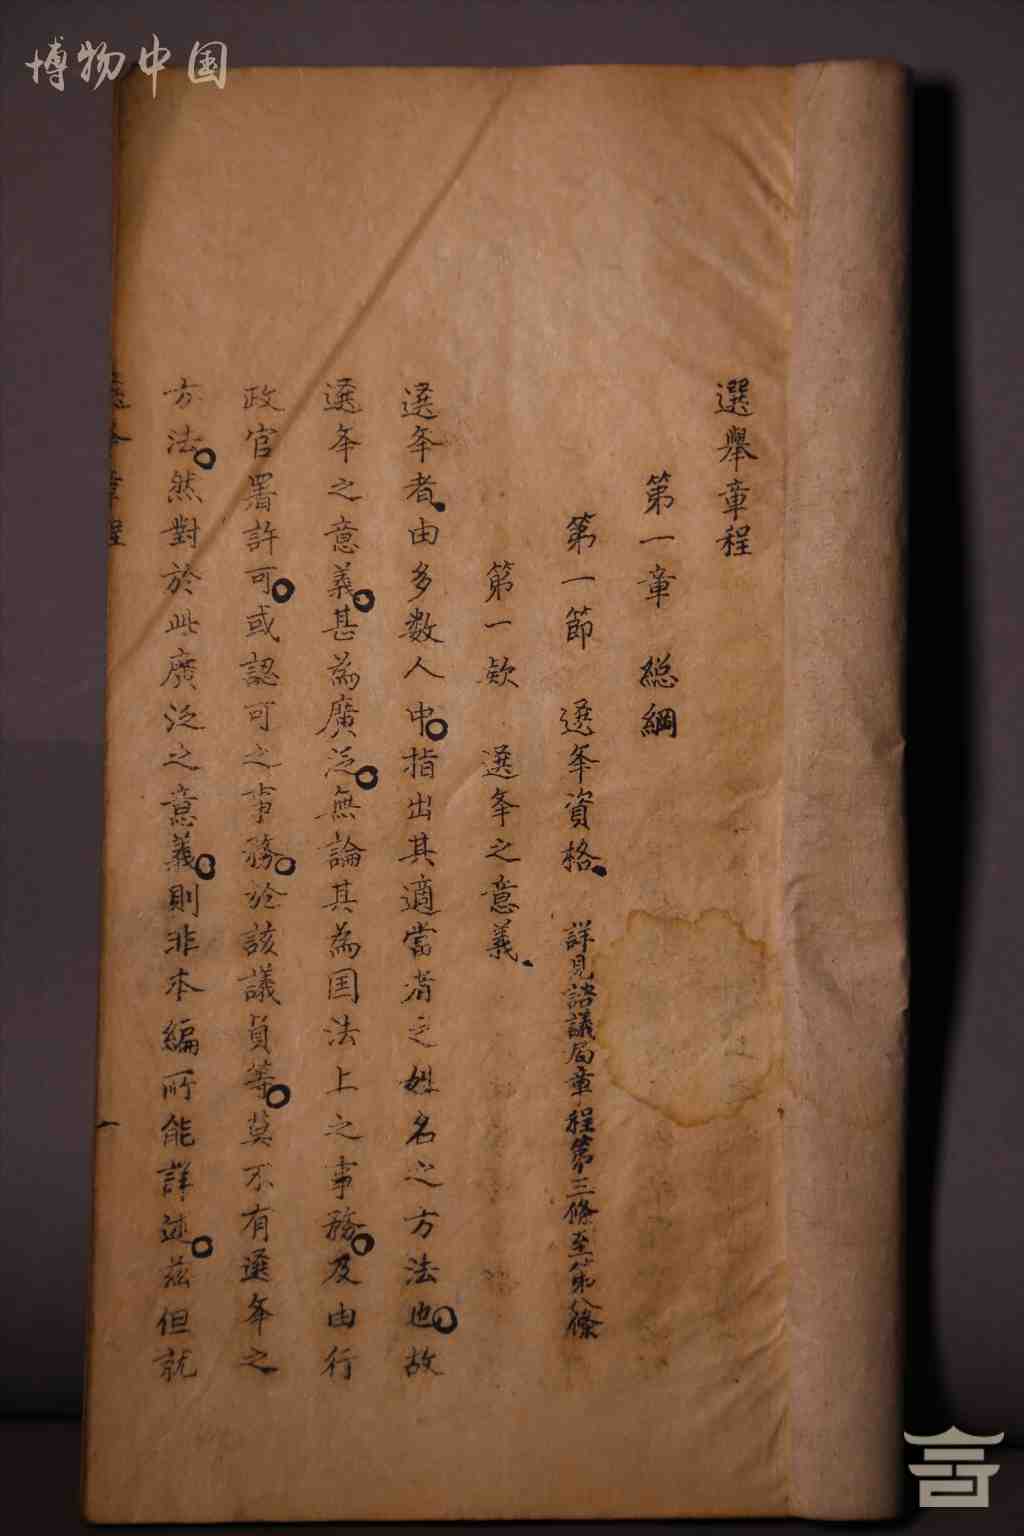 博物中国
選舉章程
第一章 総綱
第一節 選举資格、 詳見諮議局章程第三條至第八條
第一欵 選举之意義、
選举者、由多数人中。指出其適當者之姓名之方法也。故
選举之意義。甚為廣泛。無論其為囯法上之事務。及由行
政官署許可。或認可之事務。於該議員等。莫不有選举之
方法。然對於此廣泛之意義。則非本編所能詳述。茲但就
選举章程 一